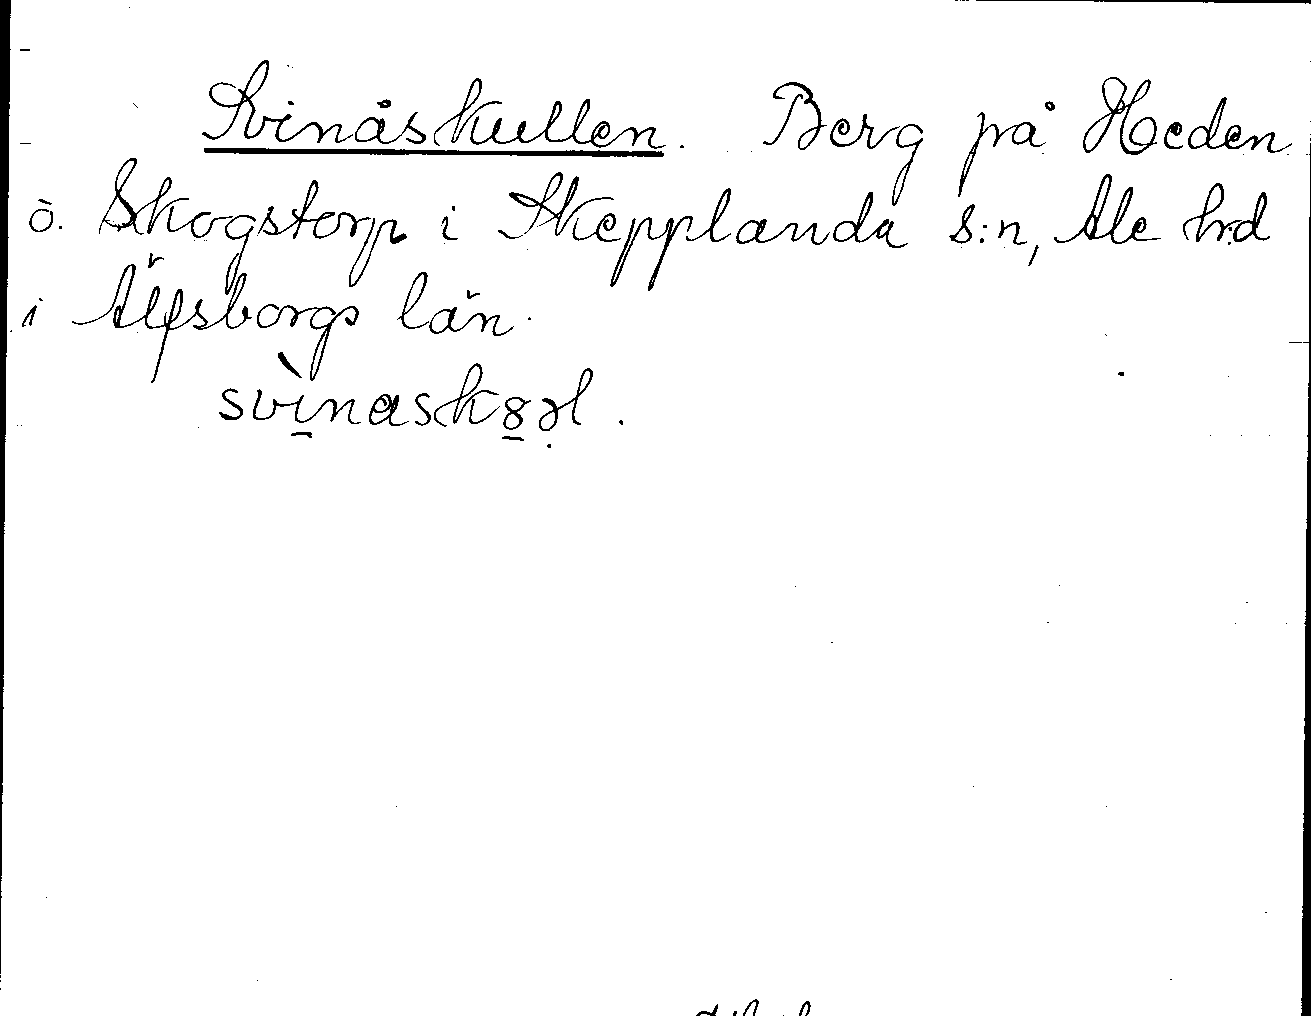 Svinåskullen. Berg på Heden
ö. Skogstorp i Skepplanda s:n, Ale hd
i Älfsborgs län.
svìnask8əl.